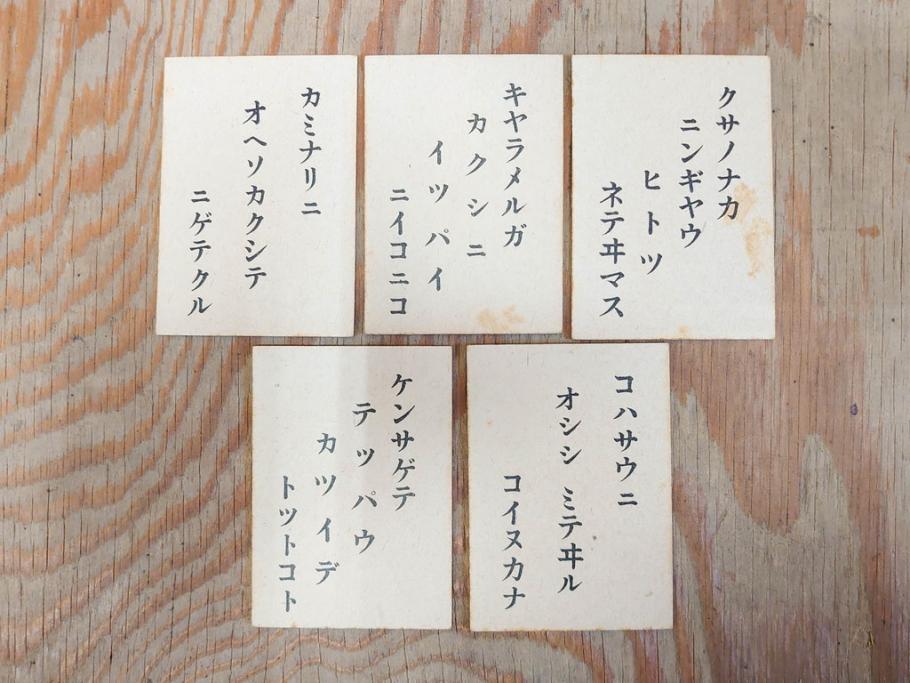 クサノナカ
ニンギヤウ
ヒトツ
ネテヰマス
キヤラメルガ
カクシニ
イツパイ
ニイコニコ
カミナリニ
オヘソカクシテ
ニゲテクル
コハサウニ
オシシ ミテヰル
コイヌカナ
ケンサゲテ
テツパウ
カツイデ
トツトコト